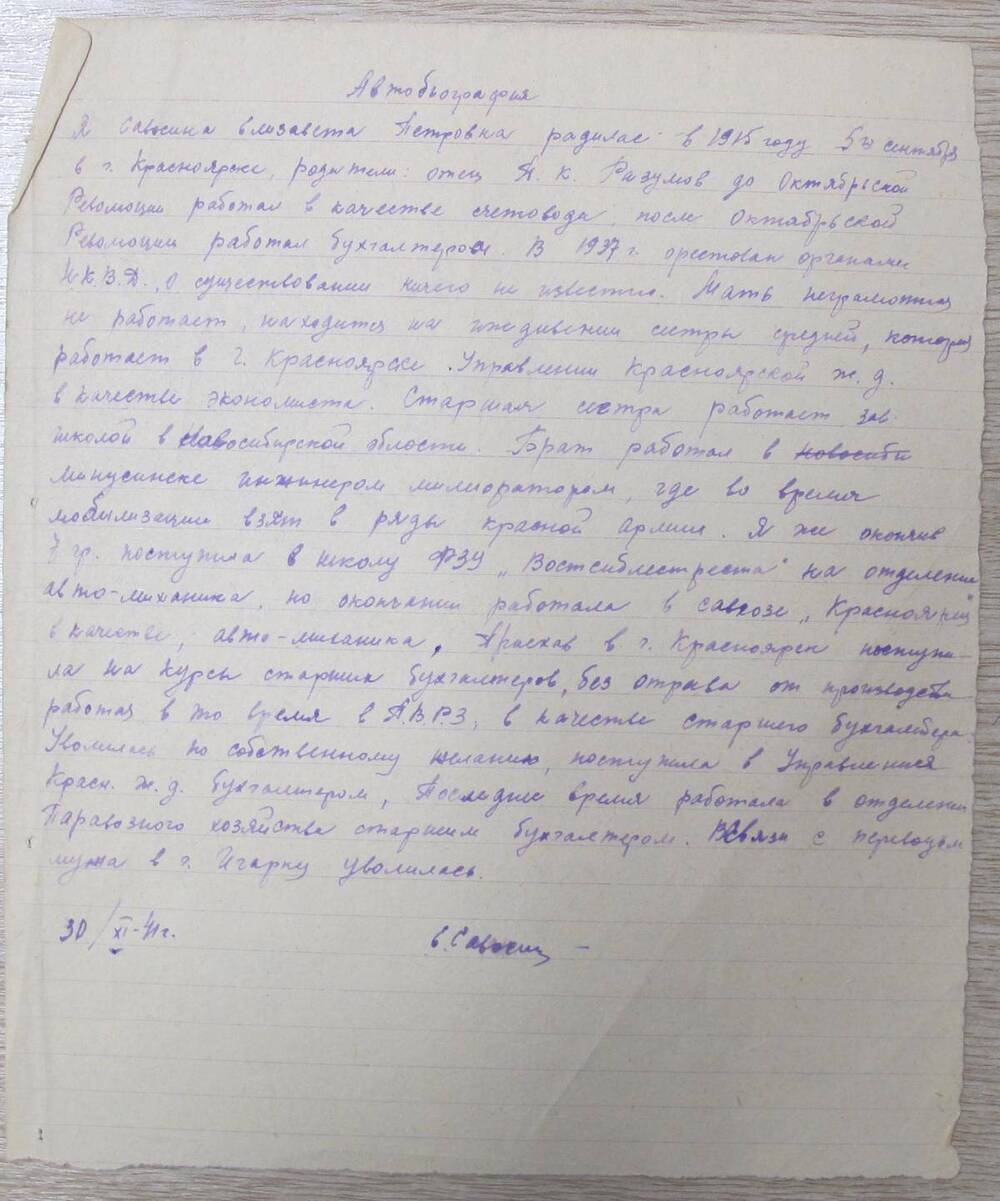 Автобьография
Я Савосина Елизавета Петровна радилас в 1915 году 5го сентября
в г. Красноярске, родители: отец П. К. Разумов до Октябрьской
Революции работал в качестве счетовода, после Октябрьской
Революции работал бухгалтером. В 1937 г. орестован органами
Н.К.В.Д., О существовании ничего не известно. Мать неграмотная
не работает, находится на иждивении сестры средней, которая
работает в г. Красноярске Управлении Красноярской ж. д.
в качестве экономиста. Старшая сестра работает зав.
школой в Новосибирской области. Брат работал в новосиби
Минусинске инжинером милиоратором, где во время
мобилизации взят в ряды красной армии. Я же окончив
7 гр. поступила в школу ФЗУ „Востсиблестреста" на отделение
авто-миханика, по окончании работала в савхозе „Красноярец"
в качестве, авто-миханика, Приехав в г. Красноярск поступи-
ла на курсы старших бухгалтеров, без отрыва от производства
работая в то время в ПВРЗ, в качестве старшего бухгалтера.
Уволилась по собственному желанию, поступила в Управления
Красн. ж. д. бухгалтером, Последние время работала в отделении
Паравозного хозяйства старшим бухгалтером. В связи с переводом
мужа в г. Игарку уволилась.
30/XI-41 г.
Е. Савосина